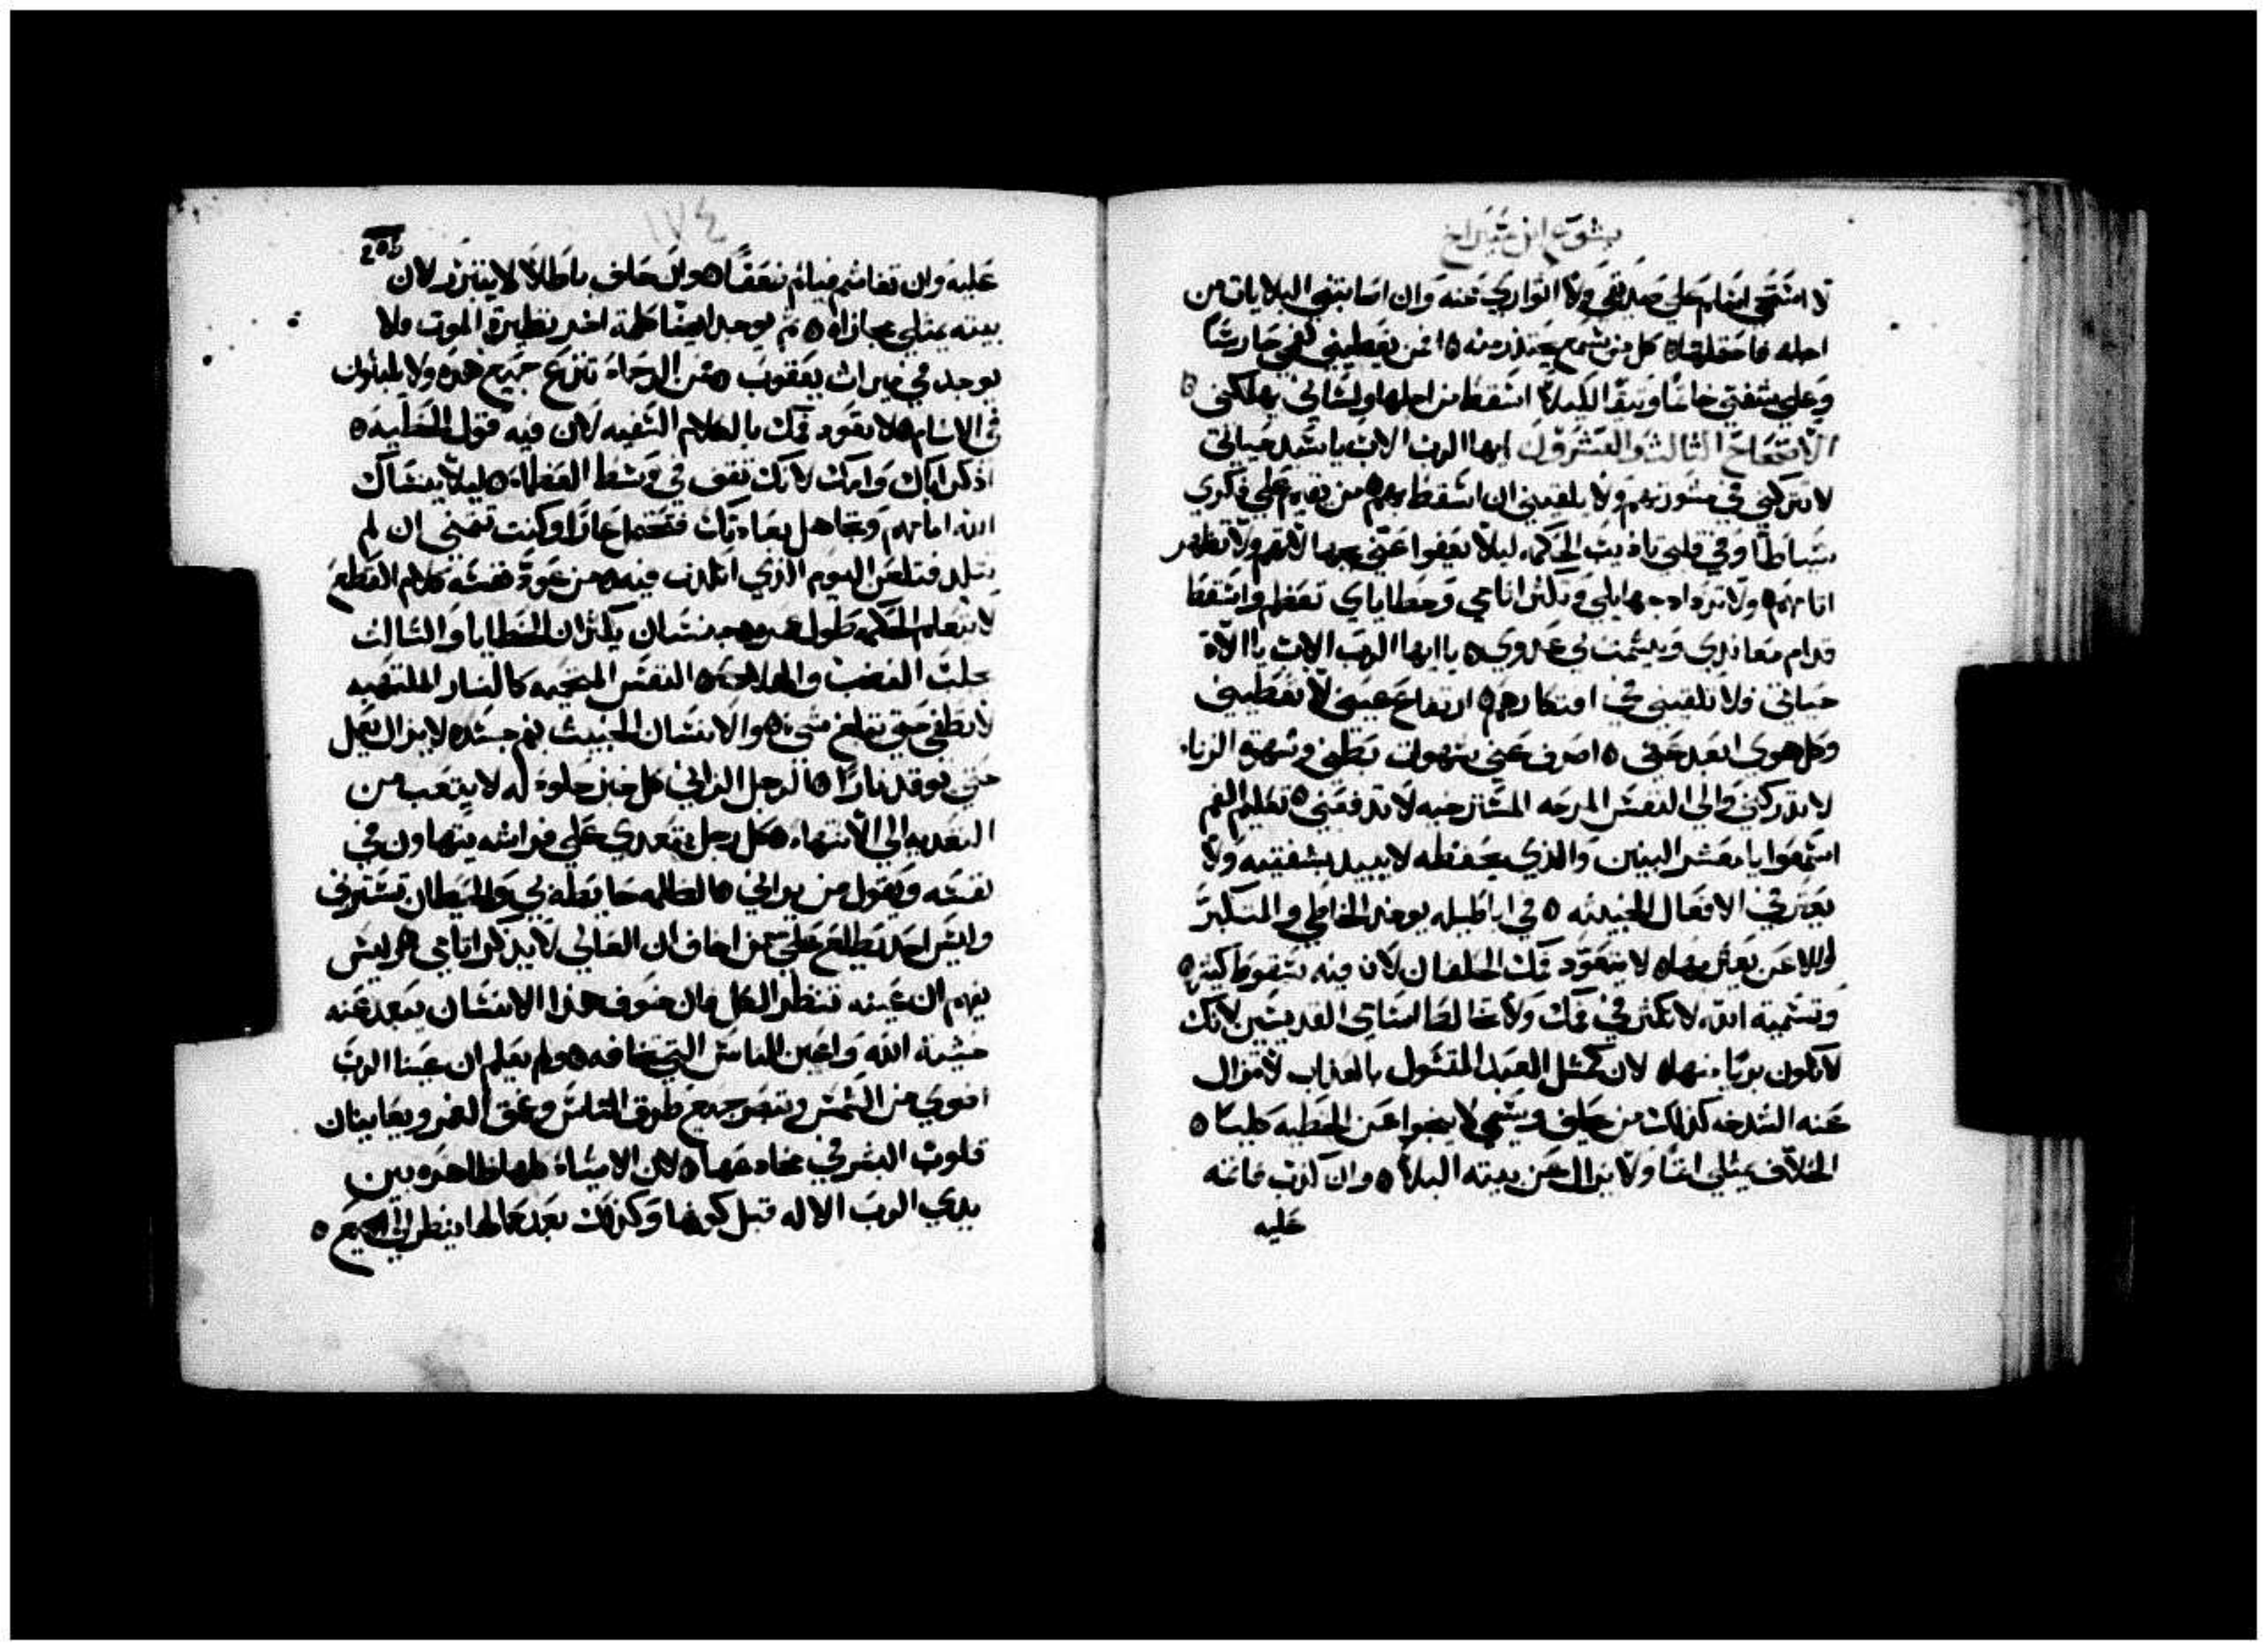 يشوع ابن شيراخ
لا استحي ان اسلم علي صديقي ولا اتواري عنه وان اصابتني البلايات من
اجله فاحتملتها ه كل من يسمع يحتذر منه ه من يعطيني لفمي حارسًا
وعلي شفتي خاتمًا وثيقًا لكيلا اسقط من اجلها ولساني يهلكني ه
الاصحاح الثالث والعشرون ايها الرب الاب يا سيد حياتي
لا تتركني في مشورتهم ولا تلقيني ان اسقط بهم ه من يقيم علي فكري
سياطًا وفي قلبي تاديب الحكمه ليلا يعفوا عني بجهالاتهم ولا تظهر
اثامهم ه ولا تزداد جهايلي وتكثر اثامي وخطاياي تعظم واسقط
قدام معاندي ويشمت بي عدوي ه يا ايها الرب الاب يا الاه
حياتي ولا تلقيني في افتكارهم ه ارتفاع عيني لا تعطيني
وكل هوي ابعد عني ه اصرف عني شهوات بطني وشهوة الزناء
لا تدركني والي النفس المرحه المسترخيه لا تدفعني ه تعليم الفم
اسمعوا يا معشر البنين والذي يحفظه لا يبيد بشفتيه ولا
يعثر في الافعال الخبيثه ه في اباطيله يوجد الخاطي والمتكبر
واللاعن يعثر بها ه لا يتعود فمك الحلفان لان فيه سقوط كثير ه
وتسمية الله لا تكثر في فمك ولا تخالط اسامي القديسين لانك
لا تكون بريًا منها ه لان كمثل العبد المقتول بالعذاب لا تزال
عنه الشدخه كذلك من يحلف ويسمي لا ينجوا من الخطيه طيبًا ه
الحلاف يمتلي اثمًا ولا يزال عن بيته البلا ه وان كذب فاثمه
عليه
١٧٤
205
عليه وان تغاشم فياثم ضعفًا ه وان حلف باطلاً لا يتبرر لان
بيته يمتلي مجازاه ه ثم يوجد ايضًا كلمة اخر نظيرة الموت ولا
يوجد في ميراث يعقوب ه من الرحماء تنزع جميع هذه ولا يلبثون
في الاثام ه لا يعود فمك بالكلام السفيه لان فيه قول الخطيه ه
اذكر اباك وامك لانك تقف في وسط العظماء ه ليلا ينساك
الله امامهم وتجاهل بعادتك فتحتمل عارًا وكنت تتمني ان لم
تولد فتلعن اليوم الذي اتلدت فيه ه من عود نفسه كلام القطع
لا يتعلم الحكمه طول عمره ه جنسان يكثران الخطايا والثالث
يجلب الغضب والهلاك ه النفس المحميه كالنار الملتهبه
لا تطفي حتي تبلع شي ه والانسان الخبيث بفم جسده لا يزال يعمل
حتي يوقد نارًا ه الرجل الزاني كل خبز حلو له لا يتعب من
التعديه الي الانتهاء ه كل رجل يتعدي علي فراشه يتهاون في
نفسه ويقول من يراني ه الظلمه حايطه بي والحيطان تسترني
وليس احد يطلع علي من اخاف ان العالي لا يذكر اثامي ه وليس
يفهم ان عينه تنظر الكل فان خوف هذا الانسان يبعد عنه
خشية الله واعين الناس التي تخافه ه ولم يعلم ان عينا الرب
اضوي من الشمس وتبصر جميع طرق الناس وعمق الغمر ويعاينان
قلوب البشر في مخادعها ه لان الاشياء كلها ظاهره بين
يدي الرب الاله قبل كونها وكذلك بعد كمالها ينظر الي الجميع ه